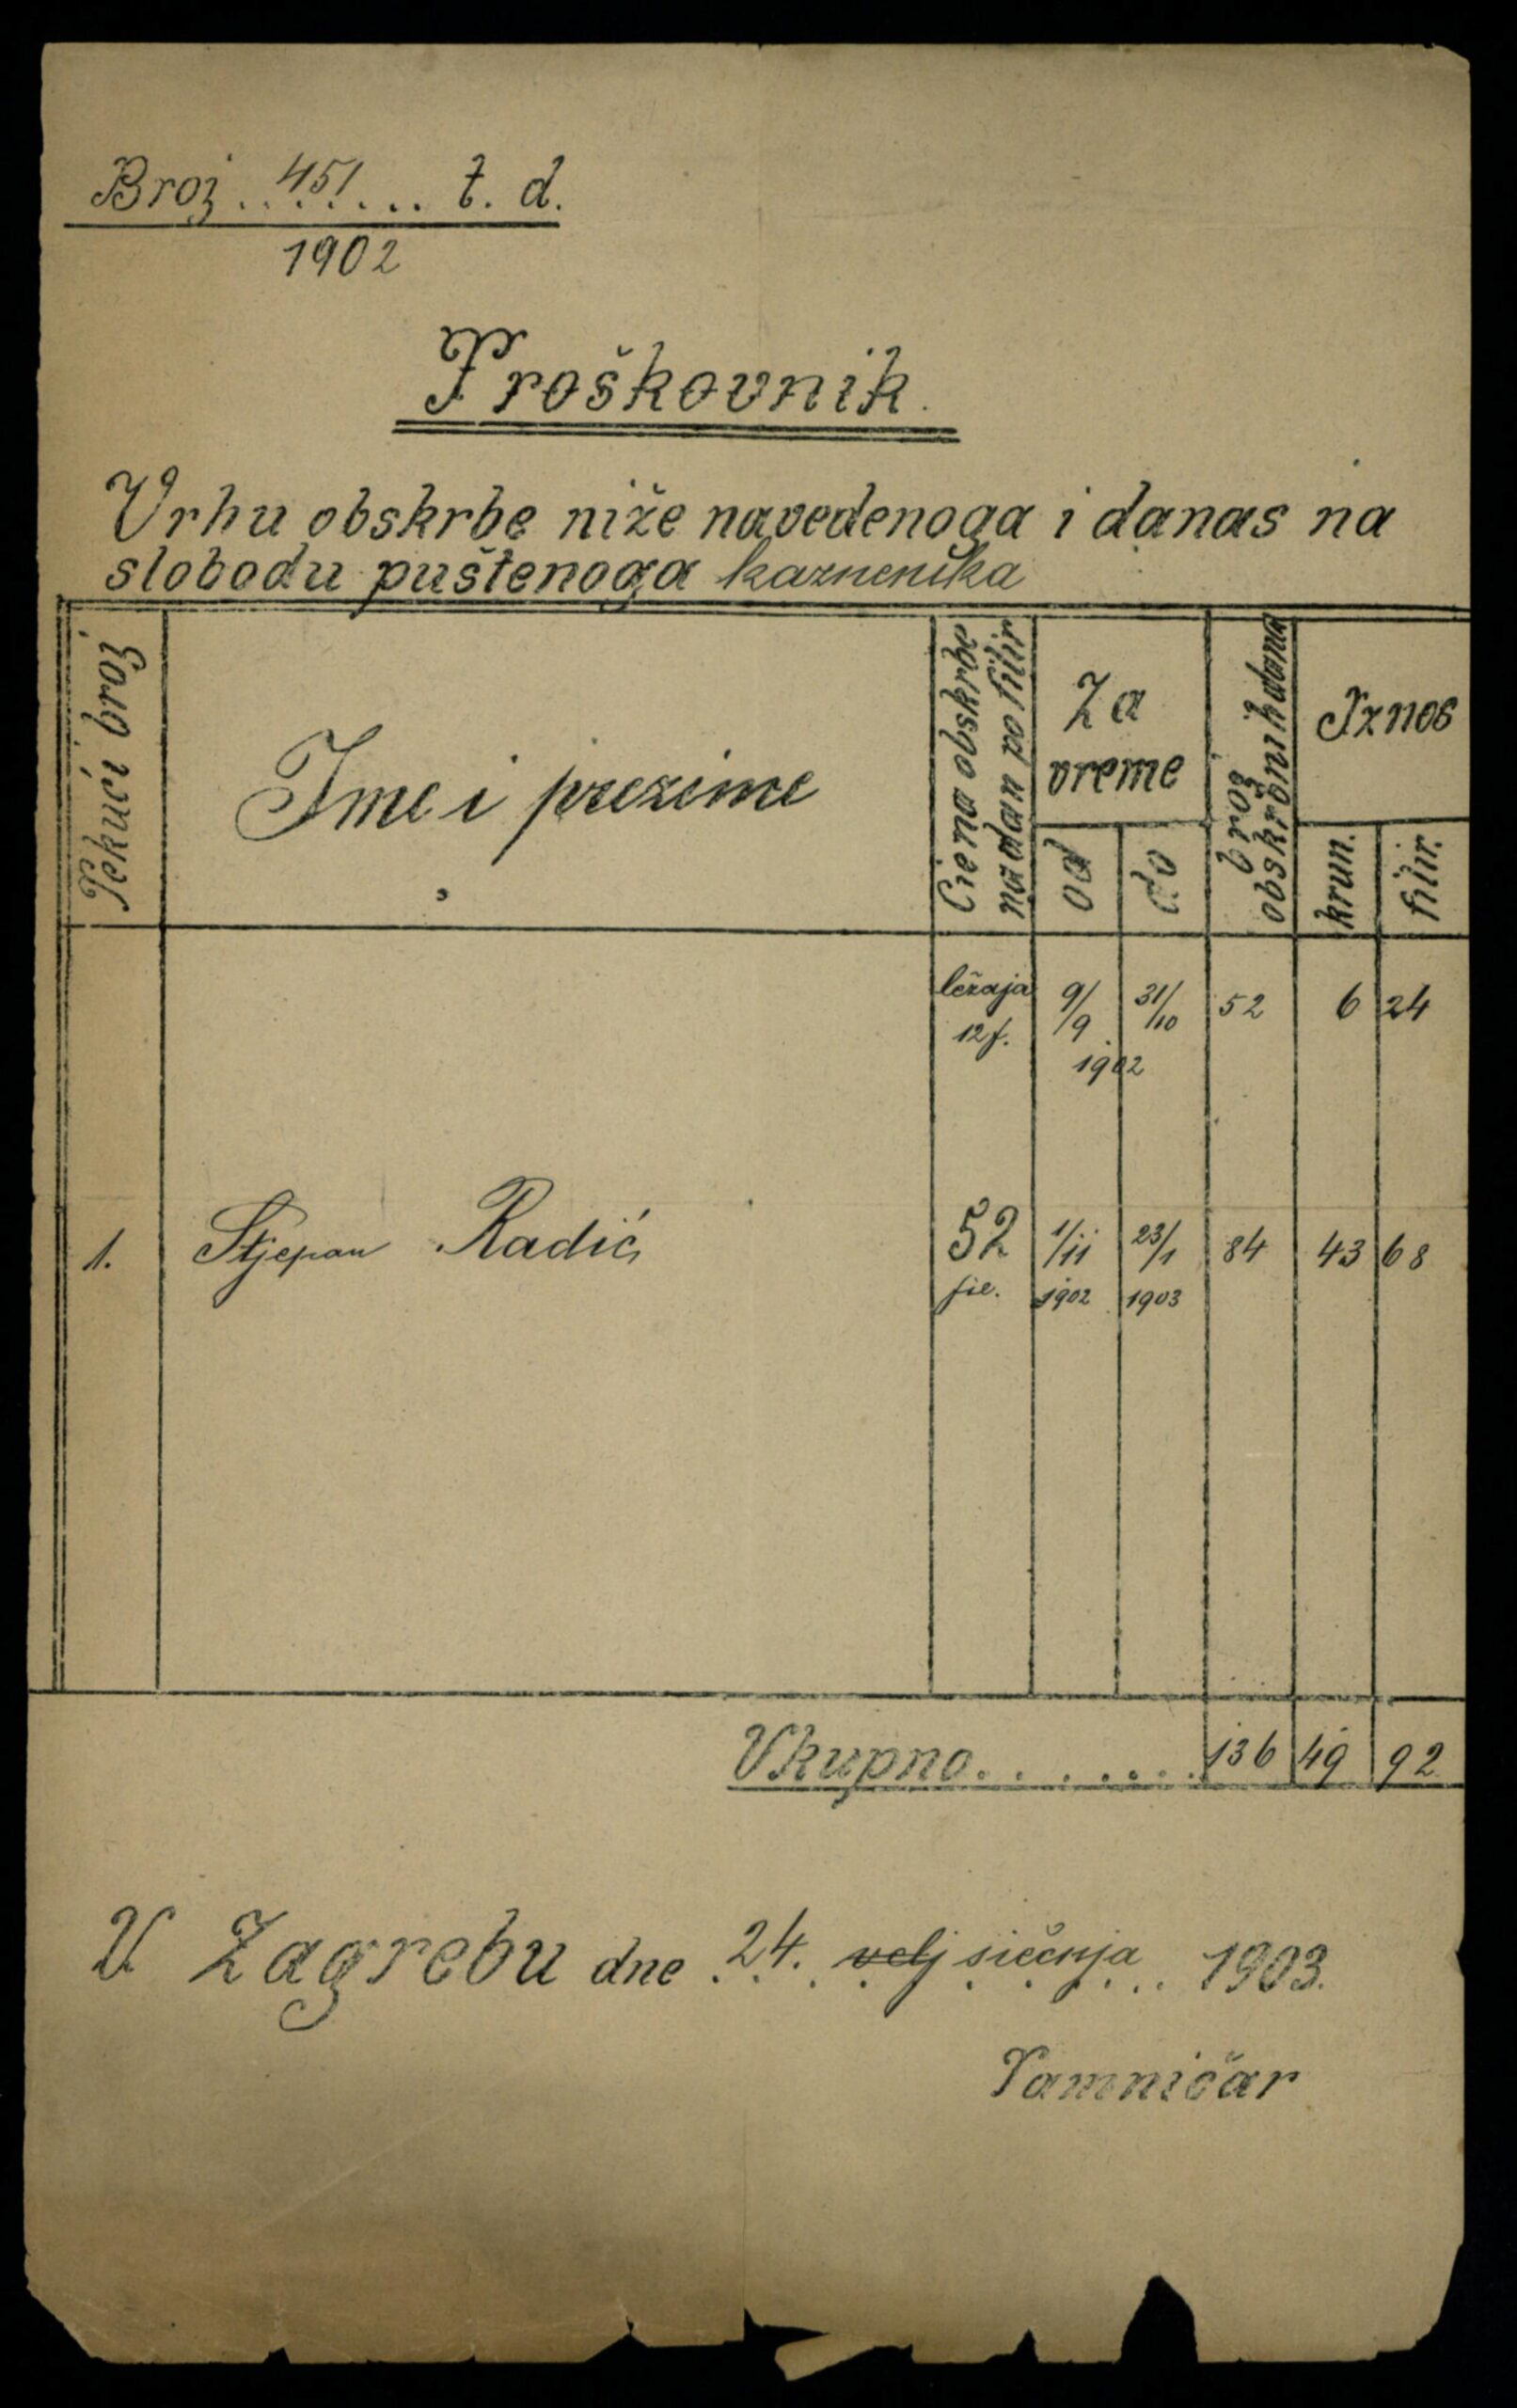 Broj...451.... t. d.
1902
Troškovnik.
Vrhu obskrbe niže navedenoga i danas na
slobodu puštenoga kaznenika
Tekući broj
Ime i prezime
Ciena obskrbe
na dan po filir
Za
vreme
od
do
broj
obskrbnih dana
Iznos
krun.
filir.
ležaja 9/9 31/10 52 6 24
12 f.
1902
1. Stjepan Radić 52 1/11 23/1 84 43 68
fil. 1902 1903
Ukupno........ 136 49 92
U Zagrebu dne 24. velj siečnja 1903.
Tamničar